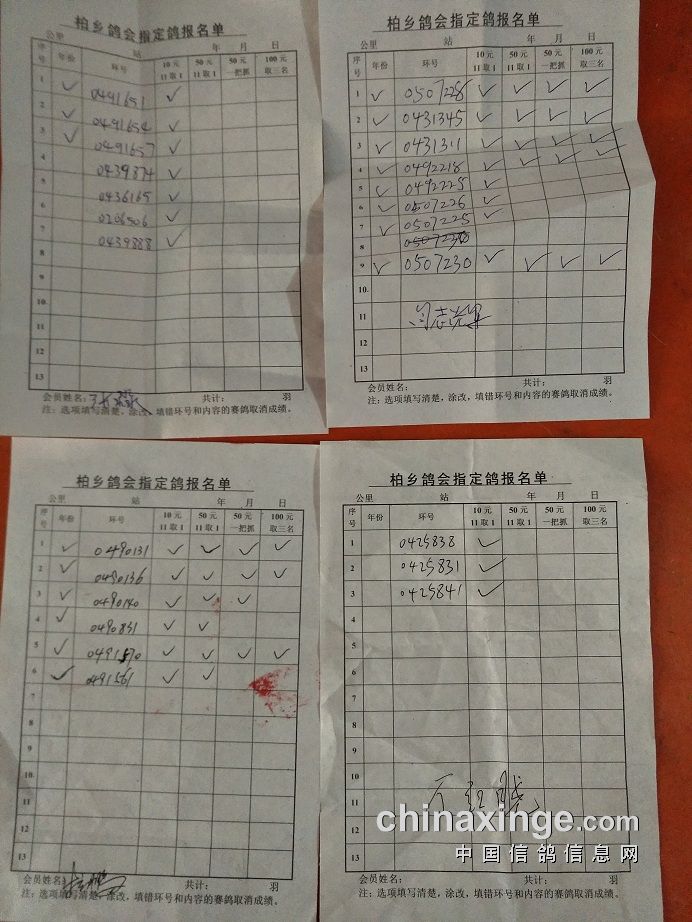 柏乡鸽会指定鸽报名单
公里 站 年 月 日
序号 年份 环号 10元 11取1 50元 11取1 50元 一把抓 100元 取三名
1 ✓ 0491651 ✓
2 ✓ 0491654 ✓
3 ✓ 0491657 ✓
4 0439874 ✓
5 0436165 ✓
6 0206506 ✓
7 0439888 ✓
8
9
10
11
12
13
会员姓名: 共计: 羽
注:选项填写清楚,涂改,填错环号和内容的赛鸽取消成绩。
柏乡鸽会指定鸽报名单
公里 站 年 月 日
序号 年份 环号 10元 11取1 50元 11取1 50元 一把抓 100元 取三名
1 ✓ 0507228 ✓ ✓ ✓ ✓
2 ✓ 0431345 ✓ ✓ ✓ ✓
3 ✓ 0431311 ✓ ✓ ✓ ✓
4 ✓ 0492218 ✓ ✓ ✓ ✓
5 ✓ 0492225 ✓
6 ✓ 0507226 ✓
7 ✓ 0507225 ✓
8
9 ✓ 0507230 ✓ ✓ ✓ ✓
10.
11 闫志
12
13
会员姓名: 共计: 羽
注:选项填写清楚,涂改,填错环号和内容的赛鸽取消成绩。
柏乡鸽会指定鸽报名单
公里 站 年 月 日
序号 年份 环号 10元 11取1 50元 11取1 50元 一把抓 100元 取三名
1 ✓ 0490131 ✓ ✓ ✓ ✓
2 ✓ 0490136 ✓ ✓ ✓ ✓
3 ✓ 0490140 ✓ ✓ ✓
4 ✓ 0490831 ✓ ✓
5 ✓ 0491570 ✓ ✓ ✓ ✓
6 ✓ 0491561 ✓ ✓
7
8
9
10
11
12
13
会员姓名: 共计: 羽
注:选项填写清楚,涂改,填错环号和内容的赛鸽取消成绩。
柏乡鸽会指定鸽报名单
公里 站 年 月 日
序号 年份 环号 10元 11取1 50元 11取1 50元 一把抓 100元 取三名
1 0425838 ✓
2 0425831 ✓
3 0425841 ✓
4
5
6
7
8
9
10
11
12
13
会员姓名: 共计: 羽
注:选项填写清楚,涂改,填错环号和内容的赛鸽取消成绩。
chinaxinge.com
中国信鸽信息网